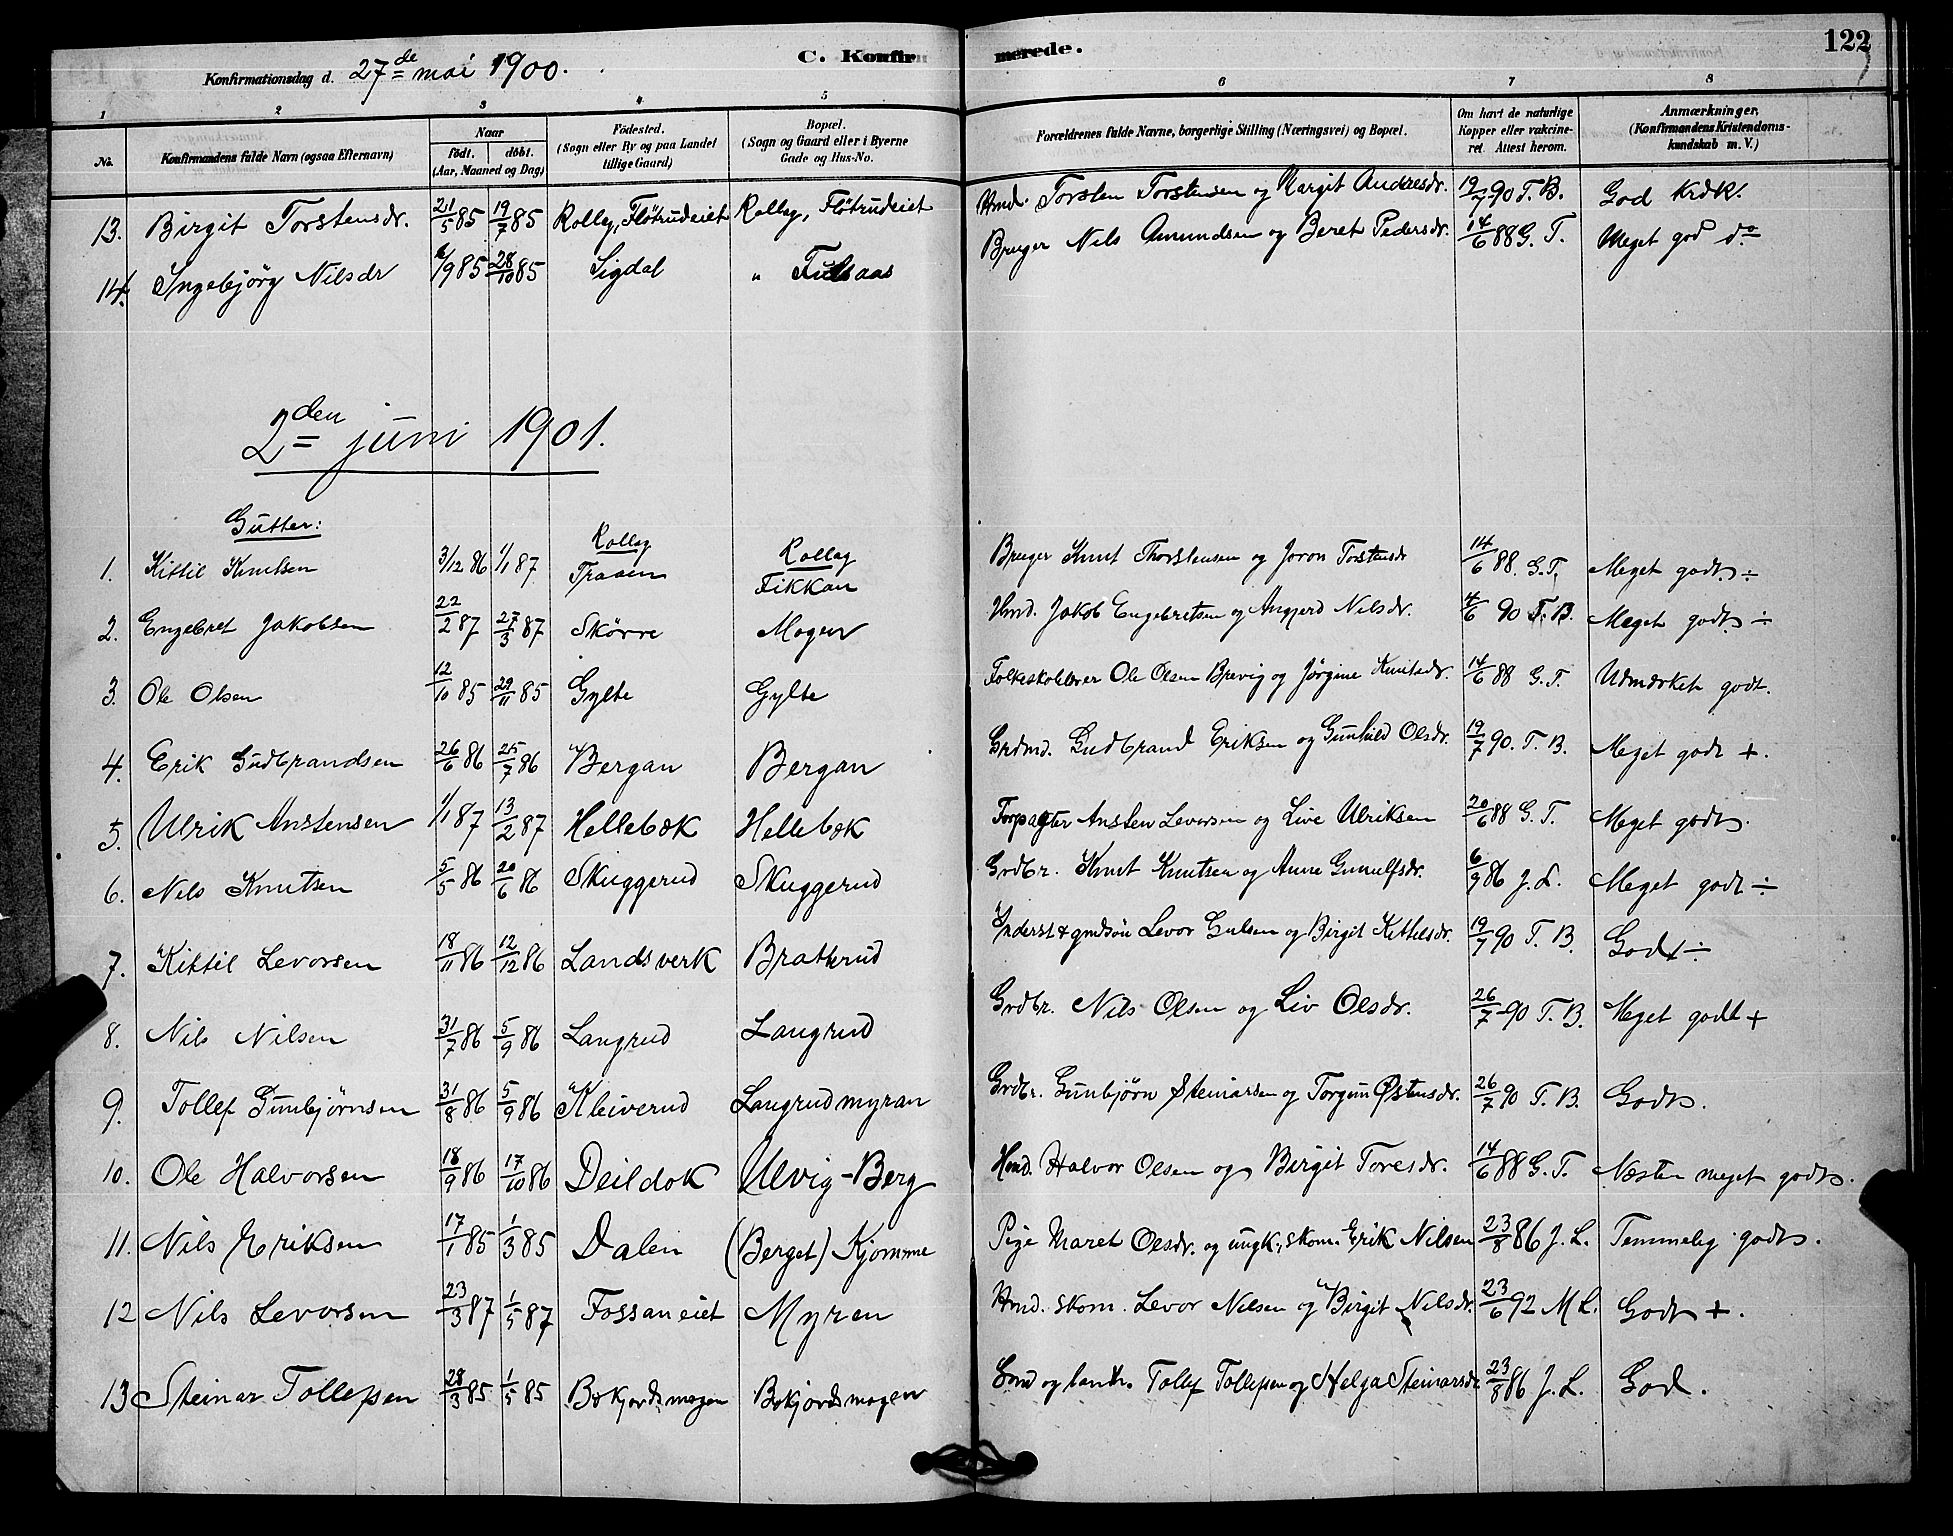 122
C. Konfirmerede.
Konfirmationsdag d. 27de mai 1900.
1 2 3 4 5 6 7 8
No. Konfirmandens fulde Navn (ogsaa Efternavn) Naar födt. döbt. (Aar, Maaned og Dag) Födested. (Sogn eller By og paa Landet tillige Gaard) Bopæl. (Sogn og Gaard eller i Byerne Gade og Hus-No. Forældrenes fulde Navne, borgerlige Stilling (Næringsvei) og Bopæl. Om havt de naturlige Kopper eller vakcineret. Attest herom. Anmærkninger, (Konfirmandens Kristendomskundskab m. V.)
13. Birgit Torstensdr. 21/5 85 19/7 85 Rollag, Fløtrudeiet Rollag, Fløtrudeiet Hmd. Torsten Torstensen og Margit Andresdr. 19/7 90 T. B. God Krdk.
14. Ingebjörg Nilsdr 6/9 85 28/10 85 Sigdal " Fulsaas Bruger Nils Amundsen og Beret Pedersdr. 14/6 88 G. T. Meget god do
2den juni 1901.
Gutter:
1. Kittil Knutsen 3/12 86 1/1 87 Rollag Traaen Rollag Fikkan Bruger Knut Thorstensen og Joron Torstensdr 14/6 88. G. T. Meget godt ÷
2. Engebret Jakobsen 22/2 87 27/3 87 Skörre Mogen Hmd. Jakob Engebretsen og Angjerd Nilsdr. 4/6 90 T. B. Meget godt ÷
3. Ole Olsen 12/10 85 29/11 85 Gylte Gylte Folkeskolelærer Ole Olsen Brevig og Jörgine Knutsdr. 14/6 88 G. T. Udmærket godt.
4. Erik Gudbrandsen 26/6 86 25/7 86 Bergan Bergan Grdmd. Gudbrand Eriksen og Gunhild Olsdr. 19/7 90. T. B. Meget godt +.
5. Ulrik Anstensen 1/1 87 13/2 87 Hellebæk Hellebæk Forpagter Ansten Levorsen og Live Ulriksen 20/6 88 G. T. Meget godt.
6. Nils Knutsen 5/5 86 20/6 86 Skuggerud Skuggerud Grdbr. Knut Knutsen og Anne Gunulfsdr. 6/9 86 J. L. Meget godt ÷
7. Kittil Levorsen 18/11 86 12/12 86 Landsverk Bratterud Inderst & grdsön Levor Gulsen og Birgit Kittilsdr. 19/7 90 T. B. Godt ÷
8. Nils Nilsen 31/7 86 5/9 86 Langrud Langrud Grdbr. Nils Olsen og Liv Olsdr. 26/7 90 T. B. Meget godt +
9. Tollef Gunbjørnsen 31/8 86 5/9 86 Kleiverud Langrudmyran Grdbr. Gunbjörn Steinarsen og Torgun Østensdr. 26/7 90 T. B. Godt.
10. Ole Halvorsen 18/9 86 17/10 86 Deildok Ulvig-Berg Hmd. Halvor Olsen og Birgit Toresdr. 14/6 88 G. T. Næsten meget godt.
11. Nils Eriksen 17/1 85 1/3 85 Dalen (Berget) Kjomme Pige Maret Olsdr. og ungk., skom. Erik Nilsen 23/8 86 J. L. Temmelig godt.
12 Nils Levorsen 23/3 87 1/5 87 Fossaneiet Myren Hmd. skom. Levor Nilsen og Birgit Nilsdr. 23/6 92 M L. Godt +.
13 Steinar Tollefsen 28/3 85 1/5 85 Bækjordsmogen Bækjordsmogen og Tollef Tollefsen og Helga Steinarsdr. 23/8 86 J. L. God.